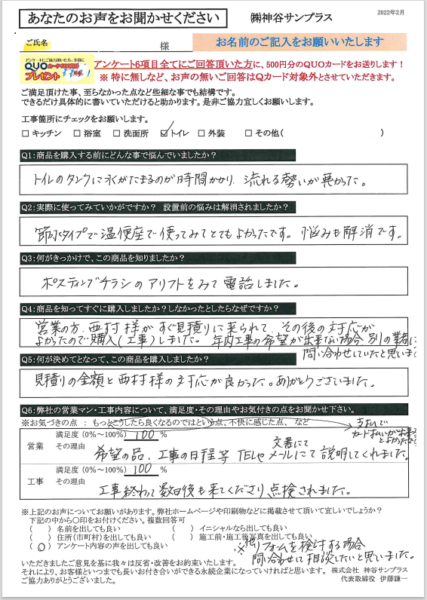 あなたのお声をお聞かせください
㈱神谷サンプラス
2022年2月
ご氏名
様
お名前のご記入をお願いいたします
QUOカード
プレゼント
アンケート6項目全てにご回答頂いた方に、500円分のQUOカードをお送りします!
※ 特に無しなど、お声の無いご回答はQカード対象外とさせていただきます。
ご満足頂けた事、至らなかった点など些細な事でも結構です。
できるだけ具体的に書いていただけると助かります。是非ご協力宜しくお願いします。
工事箇所にチェックをお願いします。
□ キッチン □ 浴室 □ 洗面所 ☑ トイレ □ 外装 □ その他( )
Q1:商品を購入する前にどんな事で悩んでいましたか?
トイレのタンクに水がたまるのが時間かかり、流れる勢いが悪かった。
Q2:実際に使ってみていかがですか? 設置前の悩みは解消されましたか?
節水タイプで温便座で使ってみてとてもよかったです。悩みも解消です。
Q3:何がきっかけで、この商品を知りましたか?
ポスティングチラシのアリフトをみて電話しました。
Q4:商品を知ってすぐに購入しましたか?しなかったとしたらなぜですか?
営業の方、西村様がすぐ見積りに来られて、その後の対応が
よかったので購入(工事)しました。年内工事の希望が出来ない場合、別の業者に
問い合わせしていたと思います
Q5:何が決めてとなって、この商品を購入しましたか?
見積りの金額と西村様の対応が良かった。ありがとうございました。
Q6:弊社の営業マン・工事内容について、満足度・その理由やお気付きの点をお聞かせ下さい。
※お気づきの点 : もっとこうしたら良くなるのではという点、不快に感じた点、など
支払いで
カード払いが出来ると
よかったなと
営業 満足度(0%~100%) 100 %
その理由
文書にて
希望の品、工事の日程等TELやメールにて説明してくれました。
工事 満足度(0%~100%) 100 %
その理由
工事終わりに数日後も来てくださり点検されました。
※上記のお声についてお願いがあります。弊社ホームページや印刷物などに掲載させて頂いて宜しいでしょうか?
下記の中から〇印をお付けください。複数回答可
( ) 名前を出しても良い ( ) イニシャルなら出しても良い
( ) 住所(市町村)を出しても良い ( ) 施工前・施工後写真を出しても良い
(〇) アンケート内容の声だけなら出しても良い
※又リフォームを検討する場合
問い合わせして相談したいと思いました。
いただきましたご意見を基に我々は反省・改善をお約束いたします。
それにより、お客様といつまでも長いお付き合いができる永続企業になっていければと思います。
ご協力ありがとうございました。
株式会社 神谷サンプラス
代表取締役 伊藤謙一